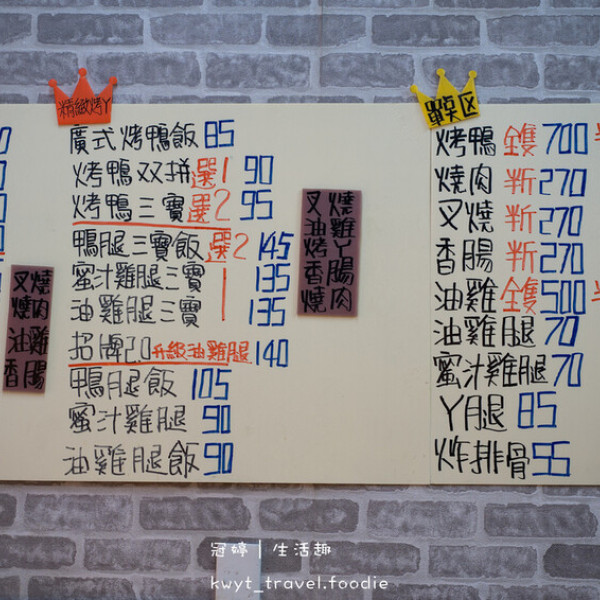 精緻烤丫
廣式烤鴨飯 85
烤鴨双拼選1 90
烤鴨三寶選2 95
鴨腿三寶飯選2 145
蜜汁雞腿三寶 1 135
油雞腿三寶 135
招牌2.0升級油雞腿 140
鴨腿飯 105
蜜汁雞腿 90
油雞腿飯 90
叉燒
燒肉
油雞
香腸
叉燒
油雞
烤丫
香腸
燒肉
單點区
烤鴨 全隻 700
燒肉 半斤 270
叉燒 半斤 270
香腸 半斤 270
油雞 全隻 500
油雞腿 70
蜜汁雞腿 70
丫腿 85
炸排骨 55
冠婷 | 生活趣
kwyt_travel.foodie